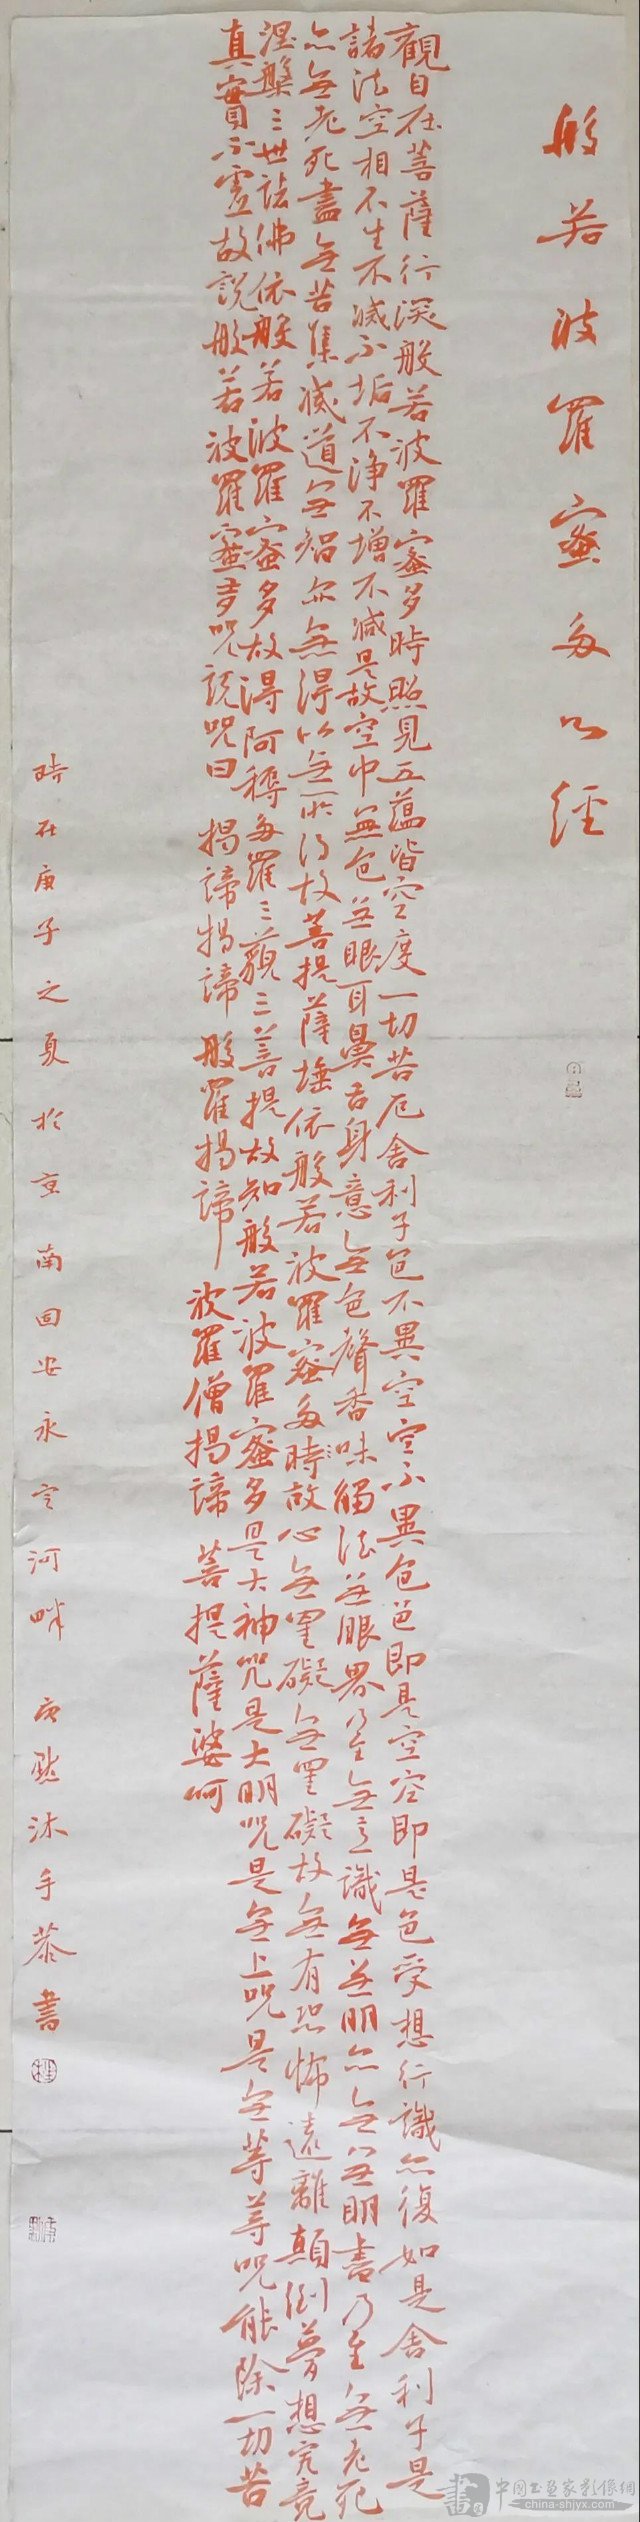 般若波羅蜜多心經
觀自在菩薩行深般若波羅蜜多時照見五蘊皆空度一切苦厄舍利子色不異空空不異色色即是空空即是色受想行識亦復如是舍利子是
諸法空相不生不滅不垢不淨不增不減是故空中無色無眼耳鼻舌身意無色聲香味觸法無眼界乃至無意識無無明亦無無明盡乃至無老死
亦無老死盡無苦集滅道無智亦無得以無所得故菩提薩埵依般若波羅蜜多時故心無罣礙無罣礙故無有恐怖遠離顛倒夢想究竟
涅槃三世諸佛依般若波羅蜜多故得阿耨多羅三藐三菩提故知般若波羅蜜多是大神咒是大明咒是無上咒是無等等咒能除一切苦
真實不虛故說般若波羅蜜多咒說咒曰 揭諦揭諦 般羅揭諦 波羅僧揭諦 菩提薩婆呵
時在庚子之夏於京南固安永定河畔 沐手恭書
中國書畫家影像網
china-shjyx.com